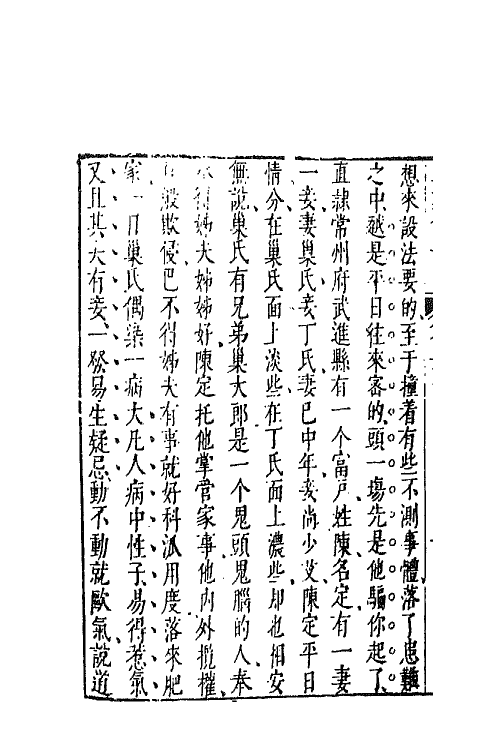 想來設法要的至于撞着有些不測事體落了患難
之中越是平日往來密的頭一塲先是他騙你起了
直隷常州府武進縣有一个富戸姓陳名定有一妻
一妾妻巢氏妾丁氏妻已中年妾尚少艾陳定平日
情分在巢氏面上淡些在丁氏面上濃些却也相安
無說巢氏有兄弟巢大郎是一个鬼頭鬼腦的人奉
承得姊夫姊姊好陳定托他掌管家事他内外攬權
百般欺侵巴不得姊夫有事就好科派用度落來肥
家一日巢氏偶染一病大凡人病中性子易得惹氣
又且其夫有妾一發易生疑忌動不動就歐氣說道